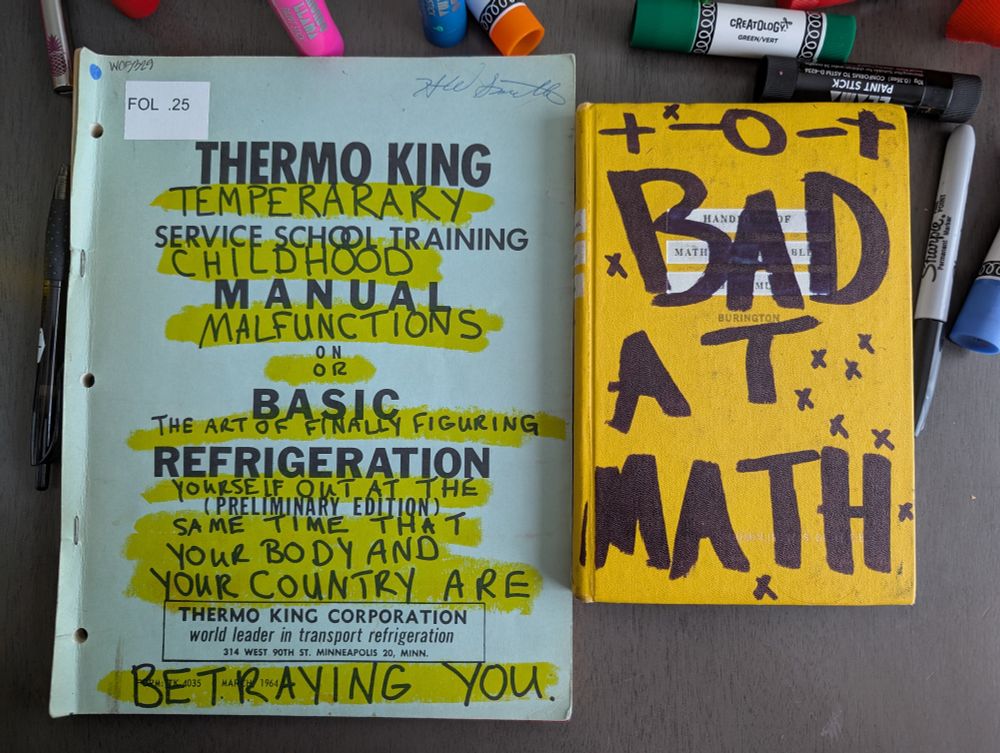 WOF329
FOL .25
THERMO KING
TEMPERARARY
SERVICE SCHOOL TRAINING
CHILDHOOD
MANUAL
MALFUNCTIONS
ON
OR
BASIC
THE ART OF FINALLY FIGURING
REFRIGERATION
YOURSELF OUT AT THE
(PRELIMINARY EDITION)
SAME TIME THAT
YOUR BODY AND
YOUR COUNTRY ARE
THERMO KING CORPORATION
world leader in transport refrigeration
314 WEST 90TH ST. MINNEAPOLIS 20, MINN.
FORM: TK 4035 MARCH 1964
BETRAYING YOU.
+ - 0 - +
HANDBOOK OF
BAD
BURINGTON
AT
MATH
CREATOLOGY
GREEN/VERT
PAINT STICK
10g (0.35oz) CONFORMS TO ASTM D-4236
Sharpie
Permanent Marker